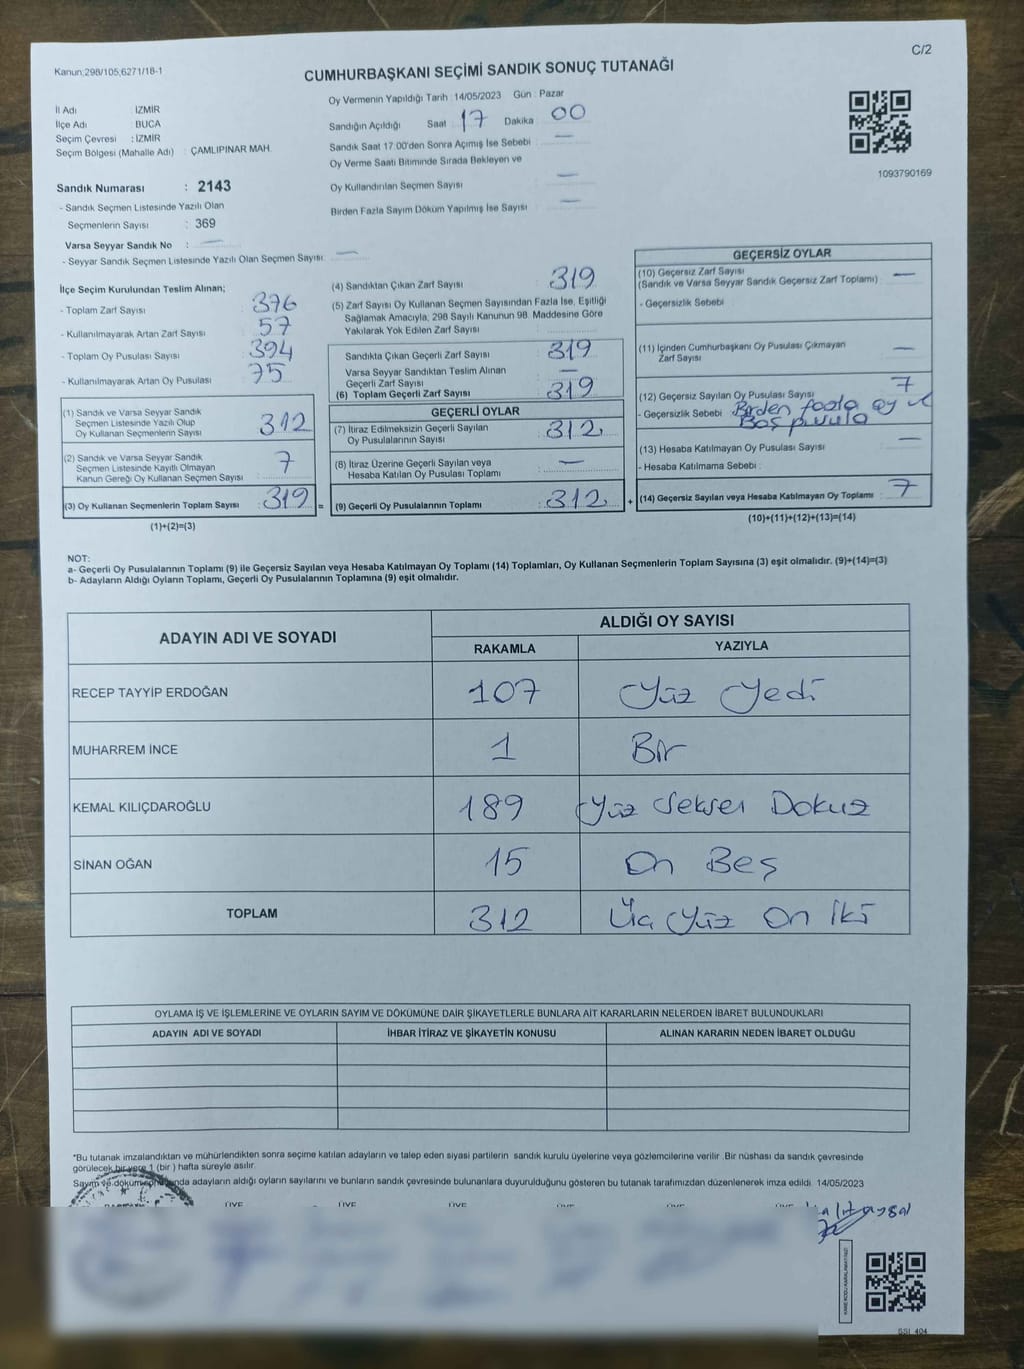 C/2
Kanun:298/105;6271/18-1
CUMHURBAŞKANI SEÇİMİ SANDIK SONUÇ TUTANAĞI
İl Adı : İZMİR
İlçe Adı : BUCA
Seçim Çevresi : İZMİR
Seçim Bölgesi (Mahalle Adı) : ÇAMLIPINAR MAH.
Sandık Numarası : 2143
- Sandık Seçmen Listesinde Yazılı Olan
Seçmenlerin Sayısı : 369
Varsa Seyyar Sandık No : —
- Seyyar Sandık Seçmen Listesinde Yazılı Olan Seçmen Sayısı: —
Oy Vermenin Yapıldığı Tarih : 14/05/2023 Gün : Pazar
Sandığın Açıldığı Saat 17 Dakika 00
Sandık Saat 17:00'den Sonra Açımış İse Sebebi : —
Oy Verme Saati Bitiminde Sırada Bekleyen ve
Oy Kullandırılan Seçmen Sayısı : —
Birden Fazla Sayım Döküm Yapılmış İse Sayısı : —
1093790169
İlçe Seçim Kurulundan Teslim Alınan;
- Toplam Zarf Sayısı : 376
- Kullanılmayarak Artan Zarf Sayısı : 57
- Toplam Oy Pusulası Sayısı : 394
- Kullanılmayarak Artan Oy Pusulası : 75
(1) Sandık ve Varsa Seyyar Sandık
Seçmen Listesinde Yazılı Olup
Oy Kullanan Seçmenlerin Sayısı : 312
(2) Sandık ve Varsa Seyyar Sandık
Seçmen Listesinde Kayıtlı Olmayan
Kanun Gereği Oy Kullanan Seçmen Sayısı : 7
(3) Oy Kullanan Seçmenlerin Toplam Sayısı : 319 =
(1)+(2)=(3)
(4) Sandıktan Çıkan Zarf Sayısı : 319
(5) Zarf Sayısı Oy Kullanan Seçmen Sayısından Fazla İse, Eşitliği
Sağlamak Amacıyla, 298 Sayılı Kanunun 98. Maddesine Göre
Yakılarak Yok Edilen Zarf Sayısı :
Sandıkta Çıkan Geçerli Zarf Sayısı : 319
Varsa Seyyar Sandıktan Teslim Alınan
Geçerli Zarf Sayısı : —
(6) Toplam Geçerli Zarf Sayısı : 319
GEÇERLİ OYLAR
(7) İtiraz Edilmeksizin Geçerli Sayılan
Oy Pusulalarının Sayısı : 312
(8) İtiraz Üzerine Geçerli Sayılan veya
Hesaba Katılan Oy Pusulası Toplamı : —
(9) Geçerli Oy Pusulalarının Toplamı : 312 +
GEÇERSİZ OYLAR
(10) Geçersiz Zarf Sayısı
(Sandık ve Varsa Seyyar Sandık Geçersiz Zarf Toplamı) : —
- Geçersizlik Sebebi :
(11) İçinden Cumhurbaşkanı Oy Pusulası Çıkmayan
Zarf Sayısı : —
(12) Geçersiz Sayılan Oy Pusulası Sayısı : 7
- Geçersizlik Sebebi : Birden fazla oy ve
Boş pusula
(13) Hesaba Katılmayan Oy Pusulası Sayısı : —
- Hesaba Katılmama Sebebi :
(14) Geçersiz Sayılan veya Hesaba Katılmayan Oy Toplamı : 7
(10)+(11)+(12)+(13)=(14)
NOT:
a- Geçerli Oy Pusulalarının Toplamı (9) ile Geçersiz Sayılan veya Hesaba Katılmayan Oy Toplamı (14) Toplamları, Oy Kullanan Seçmenlerin Toplam Sayısına (3) eşit olmalıdır. (9)+(14)=(3)
b- Adayların Aldığı Oyların Toplamı, Geçerli Oy Pusulalarının Toplamına (9) eşit olmalıdır.
ADAYIN ADI VE SOYADI ALDIĞI OY SAYISI
RAKAMLA YAZIYLA
RECEP TAYYİP ERDOĞAN 107 Yüz Yedi
MUHARREM İNCE 1 Bir
KEMAL KILIÇDAROĞLU 189 Yüz Seksen Dokuz
SİNAN OĞAN 15 On Beş
TOPLAM 312 Üç Yüz On İki
OYLAMA İŞ VE İŞLEMLERİNE VE OYLARIN SAYIM VE DÖKÜMÜNE DAİR ŞİKAYETLERLE BUNLARA AİT KARARLARIN NELERDEN İBARET BULUNDUKLARI
ADAYIN ADI VE SOYADI İHBAR İTİRAZ VE ŞİKAYETİN KONUSU ALINAN KARARIN NEDEN İBARET OLDUĞU
*Bu tutanak imzalandıktan ve mühürlendikten sonra seçime katılan adayların ve talep eden siyasi partilerin sandık kurulu üyelerine veya gözlemcilerine verilir .Bir nüshası da sandık çevresinde
görülecek bir yere 1 (bir ) hafta süreyle asılır.
Sayım ve döküm sonunda adayların aldığı oyların sayılarını ve bunların sandık çevresinde bulunanlara duyurulduğunu gösteren bu tutanak tarafımızdan düzenlenerek imza edildi. 14/05/2023
ÜYE ÜYE ÜYE ÜYE ÜYE ÜYE
SSI_404